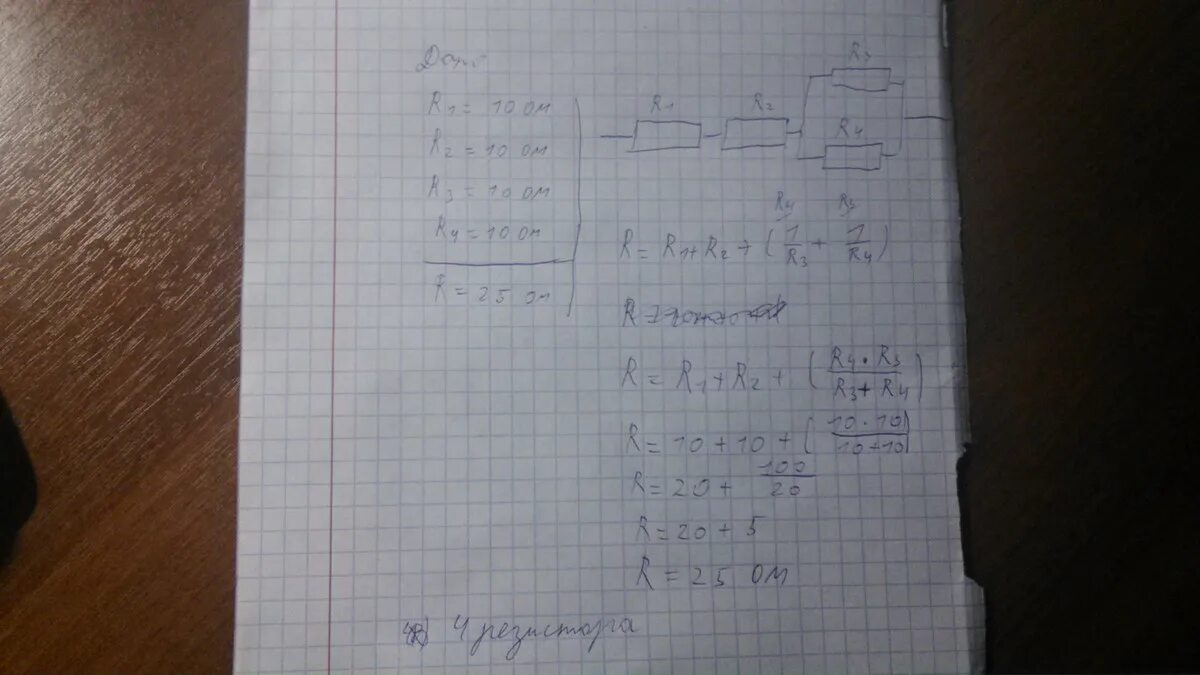 Дано
R1 = 10 ом
R2 = 10 ом
R3 = 10 ом
R4 = 10 ом
R = 25 ом
R1 R2 R3
R4
R4 R3
R = R1 + R2 + (1/R3 + 1/R4)
R =
R = R1 + R2 + (R4 · R3 / R3 + R4)
R = 10 + 10 + (10 · 10 / 10 + 10)
R = 20 + 100/20
R = 20 + 5
R = 25 ом
4 резистора